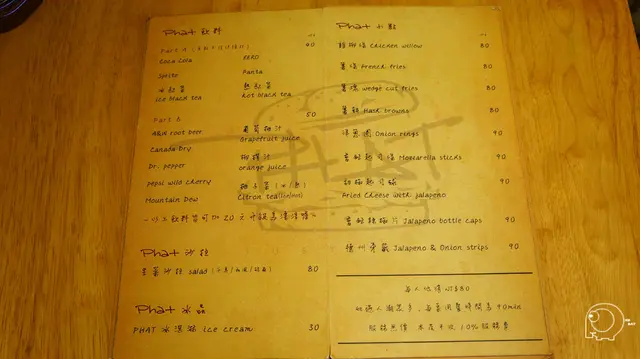 Phat 飲料
Part A
40
Coca Cola
ZERO
Sprite
Fanta
冰紅茶
熱紅茶
ice black tea
hot black tea
Part B
50
A&W root beer
葡萄柚汁
Grapefruit juice
Canada Dry
柳橙汁
Dr. pepper
orange juice
pepsi wild cherry
柚子茶(冰/熱)
Mountain Dew
Citron tea
Phat 沙拉
生菜沙拉 salad
80
Phat 冰品
PHAT 冰淇淋 ice cream
30
Phat 小點
雞柳條 Chicken willow
80
薯條 French fries
80
薯塊 wedge cut fries
80
薯餅 Hash browns
80
洋蔥圈 Onion rings
90
Mozzarella sticks
90
Fried Cheese with jalapeno
90
Jalapeno bottle caps
90
Jalapeno & Onion strips
90
每人低消NT$80
90min
服務無價 本店不收10%服務費
PHEAST